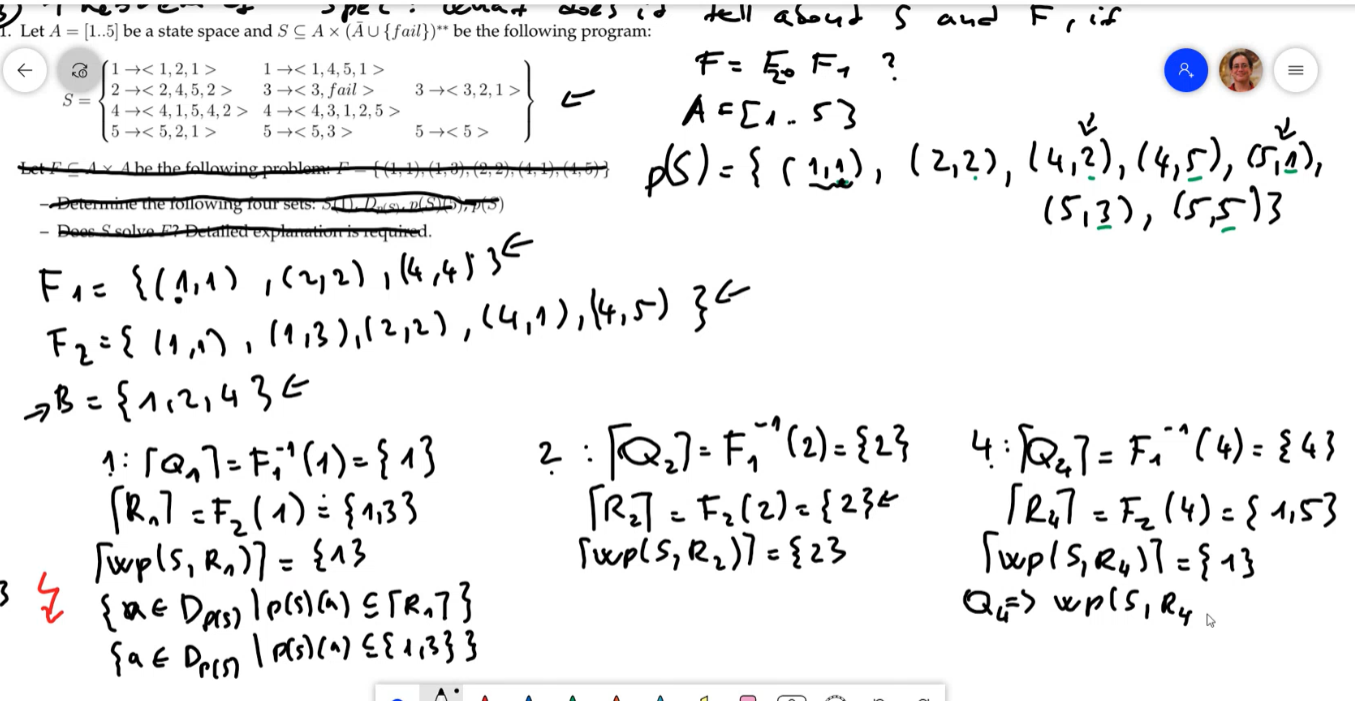 spec. what does it tell about S and F, if
1. Let A = [1..5] be a state space and S ⊆ A × (Ā ∪ {fail})** be the following program:
F = F₂∘ F₁ ?
S = { 1 →< 1, 2, 1 > 1 →< 1, 4, 5, 1 >
2 →< 2, 4, 5, 2 > 3 →< 3, fail > 3 →< 3, 2, 1 >
4 →< 4, 1, 5, 4, 2 > 4 →< 4, 3, 1, 2, 5 >
5 →< 5, 2, 1 > 5 →< 5, 3 > 5 →< 5 > } ←
A = [1..5}
p(S) = { (1,1), (2,2), (4,2), (4,5), (5,1),
(5,3), (5,5) }
Let F ⊆ A × A be the following problem: F = {(1,1), (1,3), (2,2), (4,1), (4,5)}
– Determine the following four sets: S(1), D_p(S), p(S)(5), p(S)
– Does S solve F? Detailed explanation is required.
F₁ = {(1,1), (2,2), (4,4)} ←
F₂ = { (1,1), (1,3), (2,2), (4,1), (4,5) } ←
→ B = {1,2,4} ←
1: ⌈Q₁⌉ = F₁⁻¹(1) = {1}
⌈R₁⌉ = F₂(1) = {1,3}
⌈wp(S, R₁)⌉ = {1}
{a ∈ D_p(S) | p(S)(a) ⊆ ⌈R₁⌉}
{a ∈ D_p(S) | p(S)(a) ⊆ {1,3} }
2: ⌈Q₂⌉ = F₁⁻¹(2) = {2}
⌈R₂⌉ = F₂(2) = {2} ←
⌈wp(S, R₂)⌉ = {2}
4: ⌈Q₄⌉ = F₁⁻¹(4) = {4}
⌈R₄⌉ = F₂(4) = {1,5}
⌈wp(S, R₄)⌉ = {1}
Q₄ => wp(S, R₄